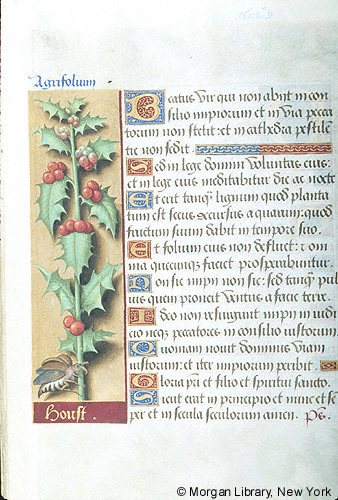 Agrifolium
Eatus vir qui non abijt in con
silio impiorum et in via pecca
torum non stetit: et in cathedra pestilē
tie non sedit.
Sed in lege domini voluntas eius:
et in lege eius meditabitur die ac nocte
Et erit tanqȝ lignum quod planta
tum est secus decursus aquarum: quod
fructum suum dabit in tempore suo.
Et folium eius non defluet: et om
nia quecunqȝ faciet prosperabuntur.
Non sic impii non sic: sed tanqȝ pul
uis quem proiicit ventus a facie terre.
Ideo non resurgunt impii in iudi
cio neqȝ peccatores in consilio iustorum.
Quoniam nouit dominus viam
iustorum: et iter impiorum peribit.
Gloria pri et filio et spiritui sancto.
Sicut erat in principio et nunc et sē
per et in secula seculorum amen. Ps.
Houst.
© Morgan Library, New York